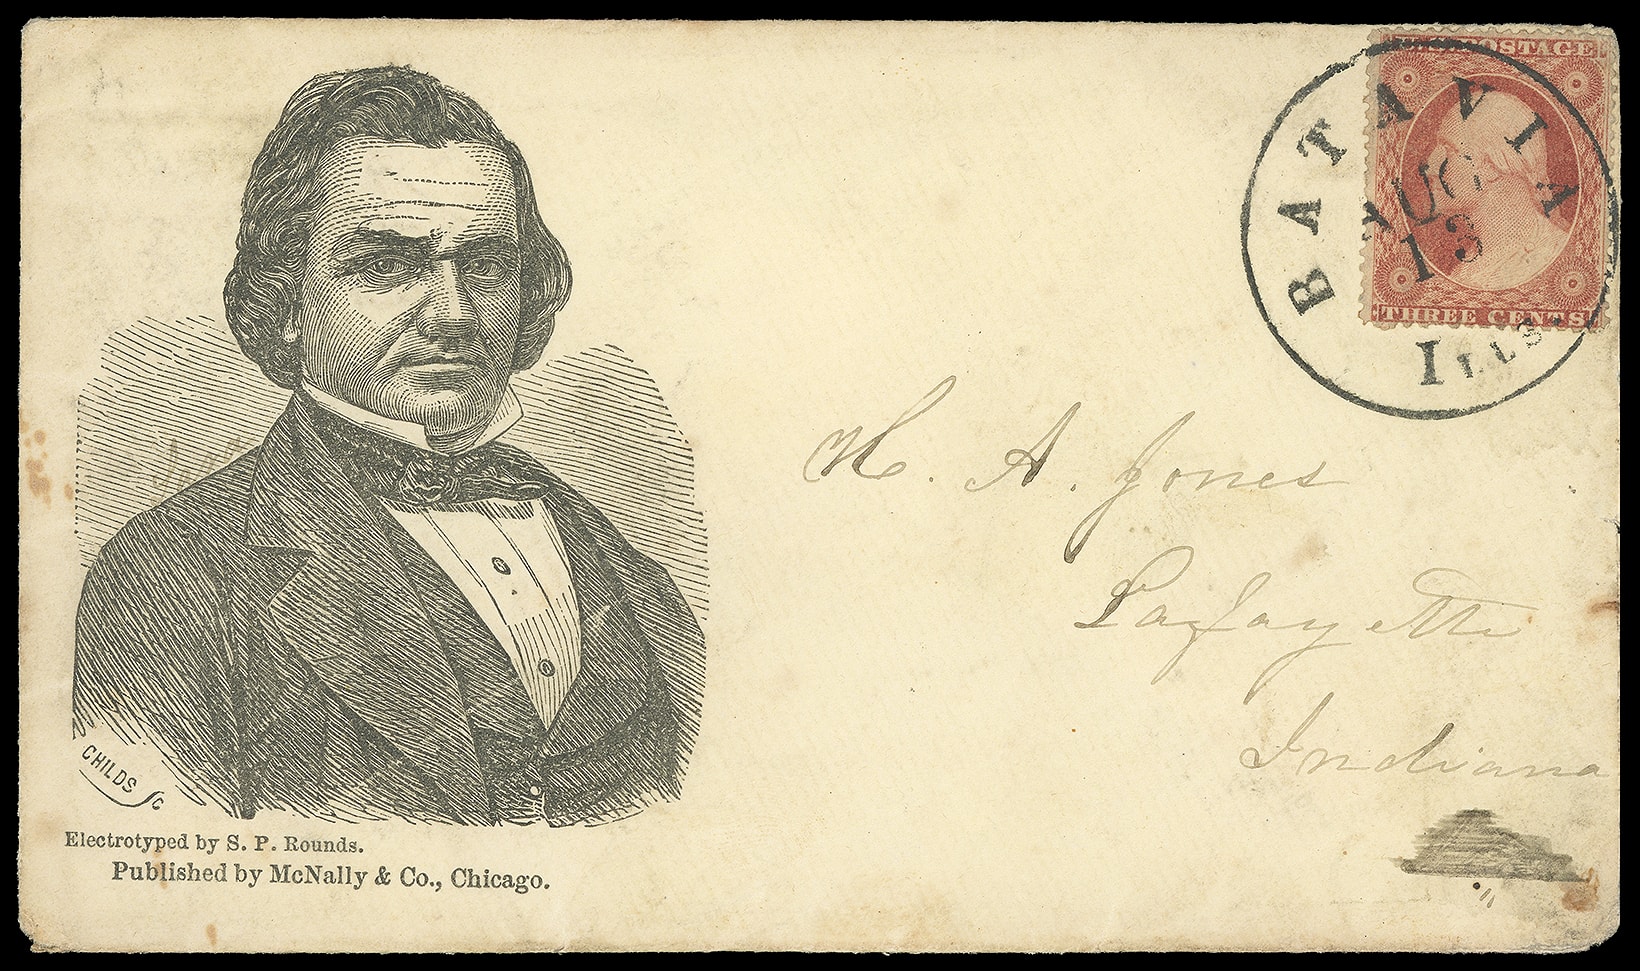 U.S. POSTAGE
THREE CENTS
BATAVIA
AUG
13
ILLS.
H. A. Jones
Lafayette
Indiana
CHILDS SC
Electrotyped by S. P. Rounds.
Published by McNally & Co., Chicago.